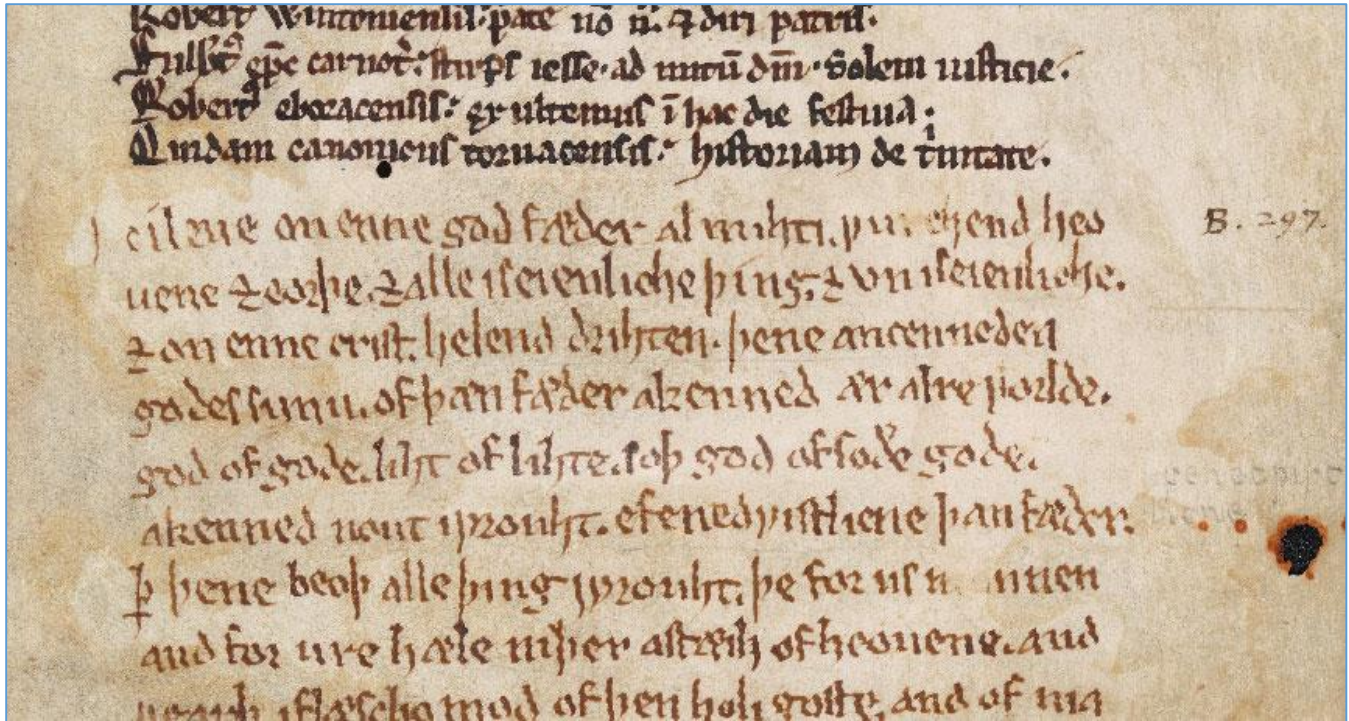 Robert Wintoniensis. pate nō n̄. ⁊ diri patris.
Fulbtꝰ ep̄c carnot̄: stirps iesse. ad nutū dn̄i. Solem iusticie.
Robertꝰ eboracensis: exultemus ī hac die festiua;
Quidam canonicus tornacensis: historiam de t̓initate.
eileue on enne god fæder almihti. hend heo B. 297.
uene ⁊ eorþe. ⁊ alle iseienliche þing. ⁊ vniseienliche.
⁊ on enne crist. helend drihten. þene ancenneden
godes sunu. of þan fæder akenned ær alre ƿorlde.
god of gode. liht of lihte. soþ god of soðe gode.
akenned nout iƿrouht. efenedƿistliene þan fæder.
þ þene beoþ alle þing iƿrouht. þe for us
and for ure hæle niþer astæih of heouene. and
ƿearþ iflæschomod of þen holi goste. and of ma